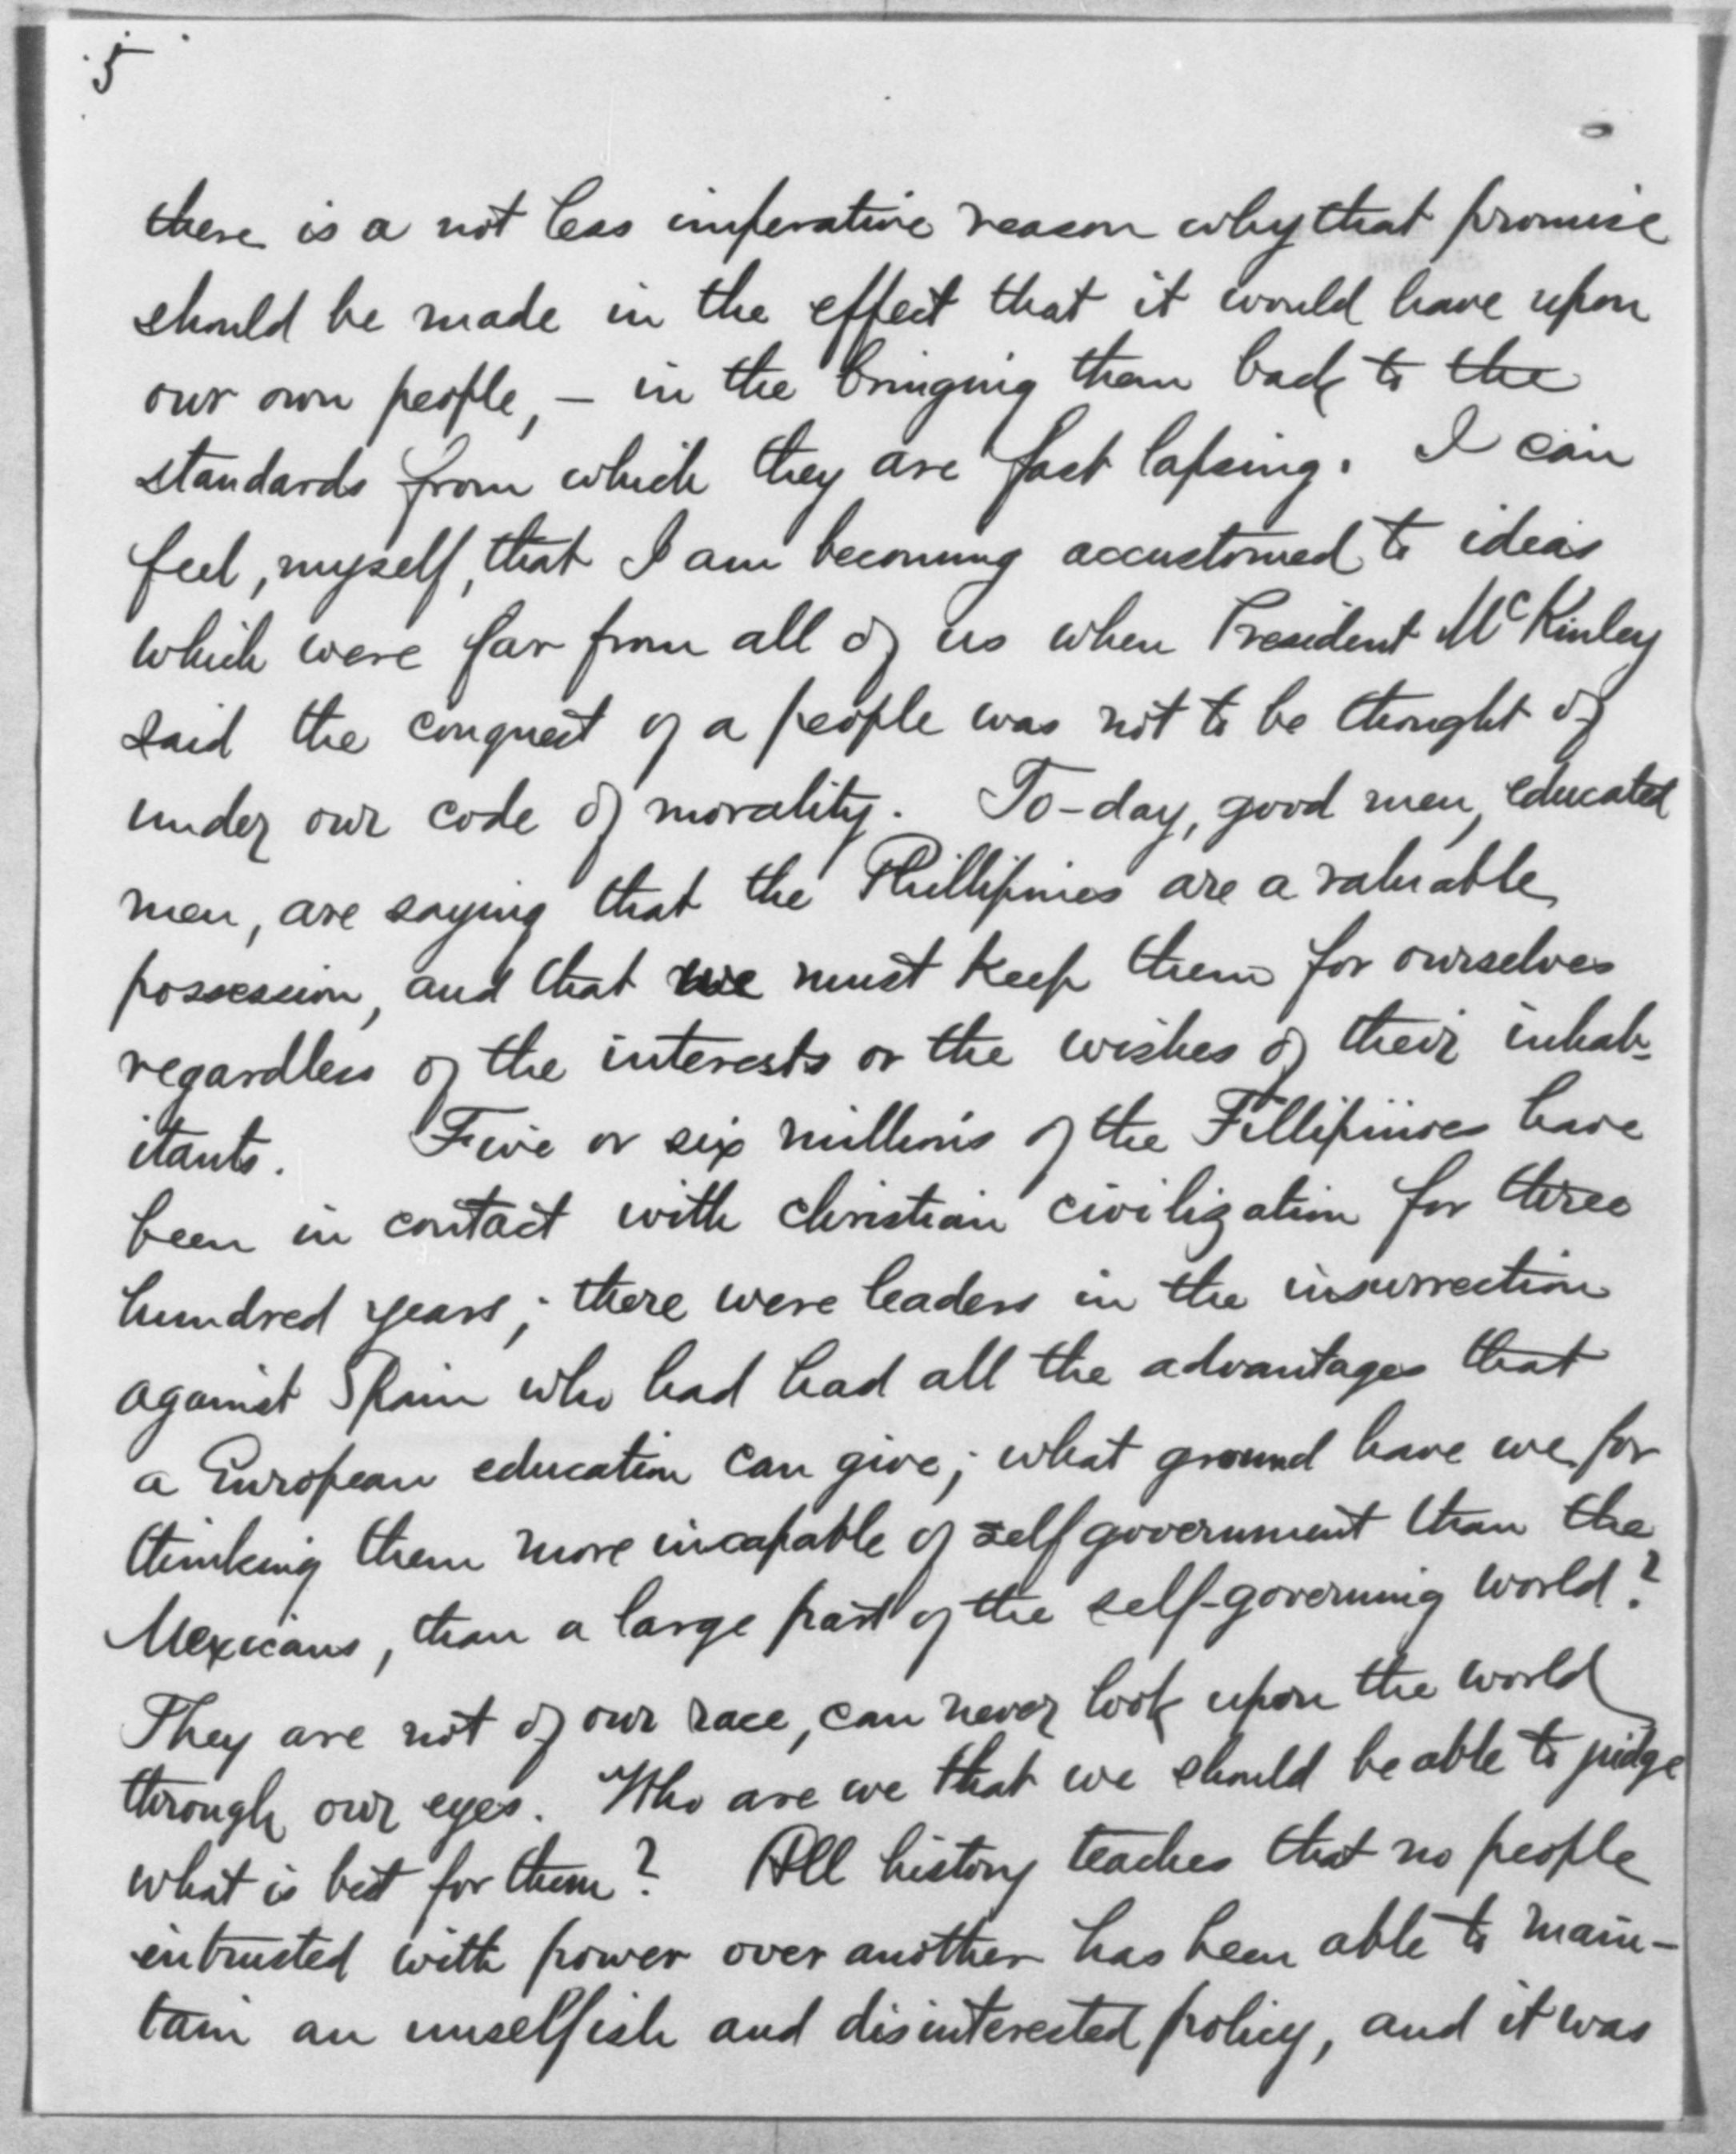 5
there is a not less imperative reason why that promise
should be made in the effect that it would have upon
our own people, – in the bringing them back to the
standards from which they are fast lapsing. I can
feel, myself, that I am becoming accustomed to ideas
which were far from all of us when President McKinley
said the conquest of a people was not to be thought of
under our code of morality. To-day, good men, educated
men, are saying that the Phillipines are a valuable
possession, and that we must keep them for ourselves
regardless of the interests or the wishes of their inhab-
itants. Five or six millions of the Fillipinoes have
been in contact with christian civilization for three
hundred years; there were leaders in the insurrection
against Spain who had had all the advantages that
a European education can give; what ground have we for
thinking them more incapable of self government than the
Mexicans, than a large part of the self-governing world?
They are not of our race, can never look upon the world
through our eyes. Who are we that we should be able to judge
what is best for them? All history teaches that no people
intrusted with power over another has been able to main-
tain an unselfish and disinterested policy, and it was